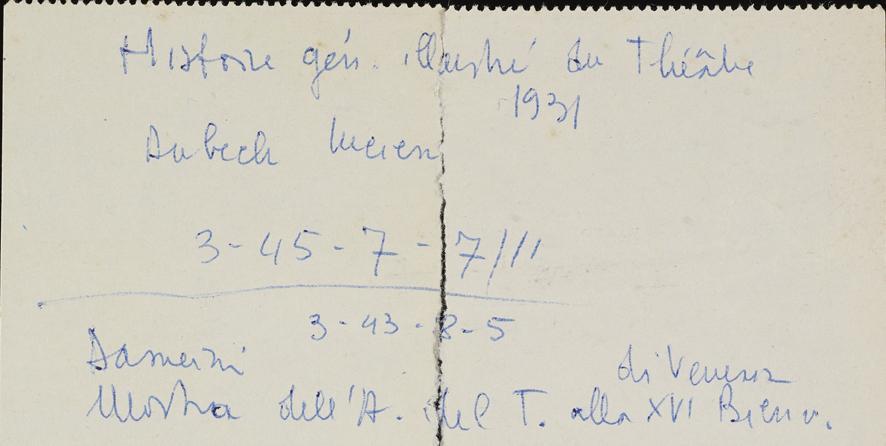 Histoire gén. illustré du Théâtre
1931
Dubech Lucien
3-45-7-7/III
3-43-8-5
Damerini
di Venezia
Mostra dell'A. del T. alla XVI Bienn.